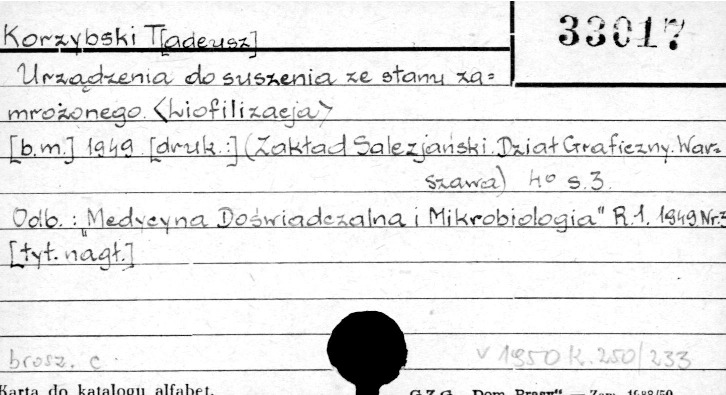 33017
Korzybski T[adeusz]
Urządzenia do suszenia ze stanu za=
mrożonego. <Liofilizacja>
[b.m.] 1949. [druk.:] (Zakład Salezjański. Dział Graficzny. War=
szawa) 4° s.3.
Odb.: „Medycyna Doświadczalna i Mikrobiologia" R.1. 1949 Nr.3
[tyt. nagł.]
brosz. c. v 1950 K. 250/233
Karta do katalogu alfabet. G.Z.G. „Dom Prasy" — Zam. 1988/50